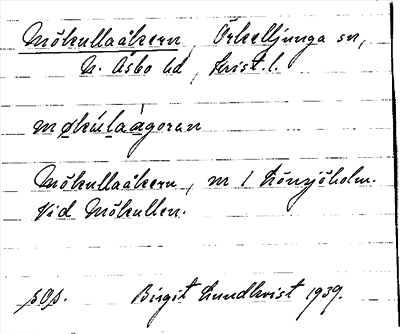 Mökullaåkern, Örkelljunga sn,
N. Åsbo hd, Krist. l.
møkúlaàgoran
Mökullaåkern, m 1 Lönsjöholm.
Vid Mökullen.
sOs. Birgit Lundkvist 1939.